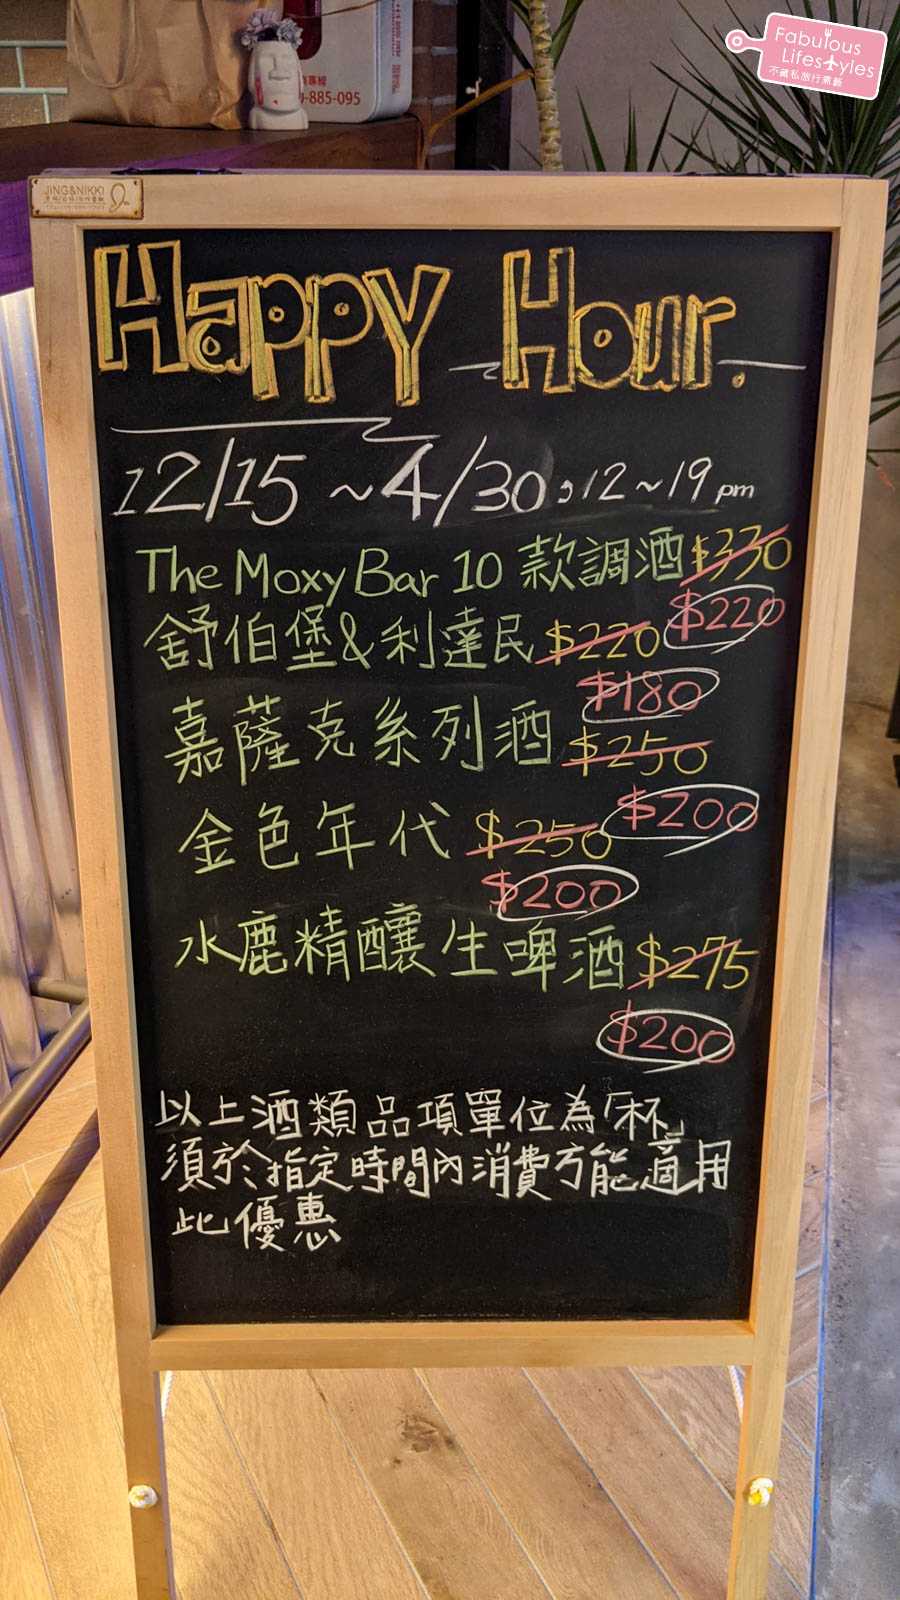 Fabulous
Lifestyles
不藏私旅行煮藝
-885-095
JING&NIKKI
Happy Hour.
12/15 ~ 4/30, 12~19 pm
The Moxy Bar 10 款調酒 $330
$220
舒伯堡&利達民 $220
$180
嘉薩克系列酒 $250
$200
金色年代 $250
$200
水鹿精釀生啤酒 $275
$200
以上酒類品項單位為「杯」
須於指定時間內消費方能適用
此優惠